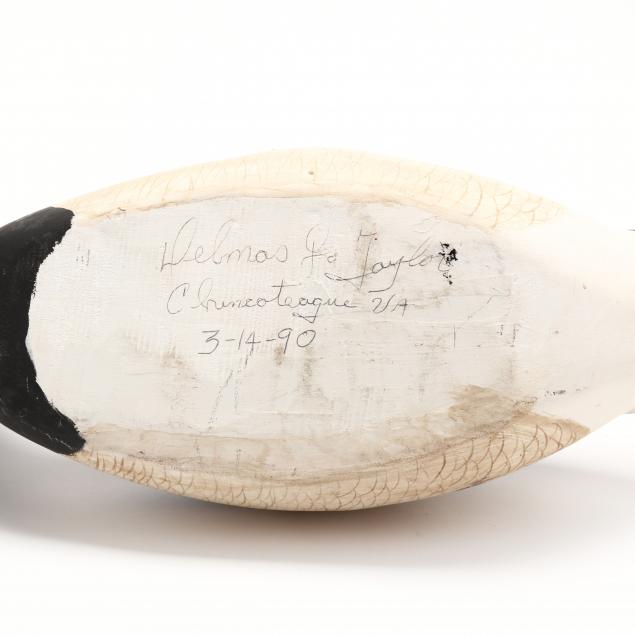 Delmas Jo Taylor
Chincoteague VA
3-14-90